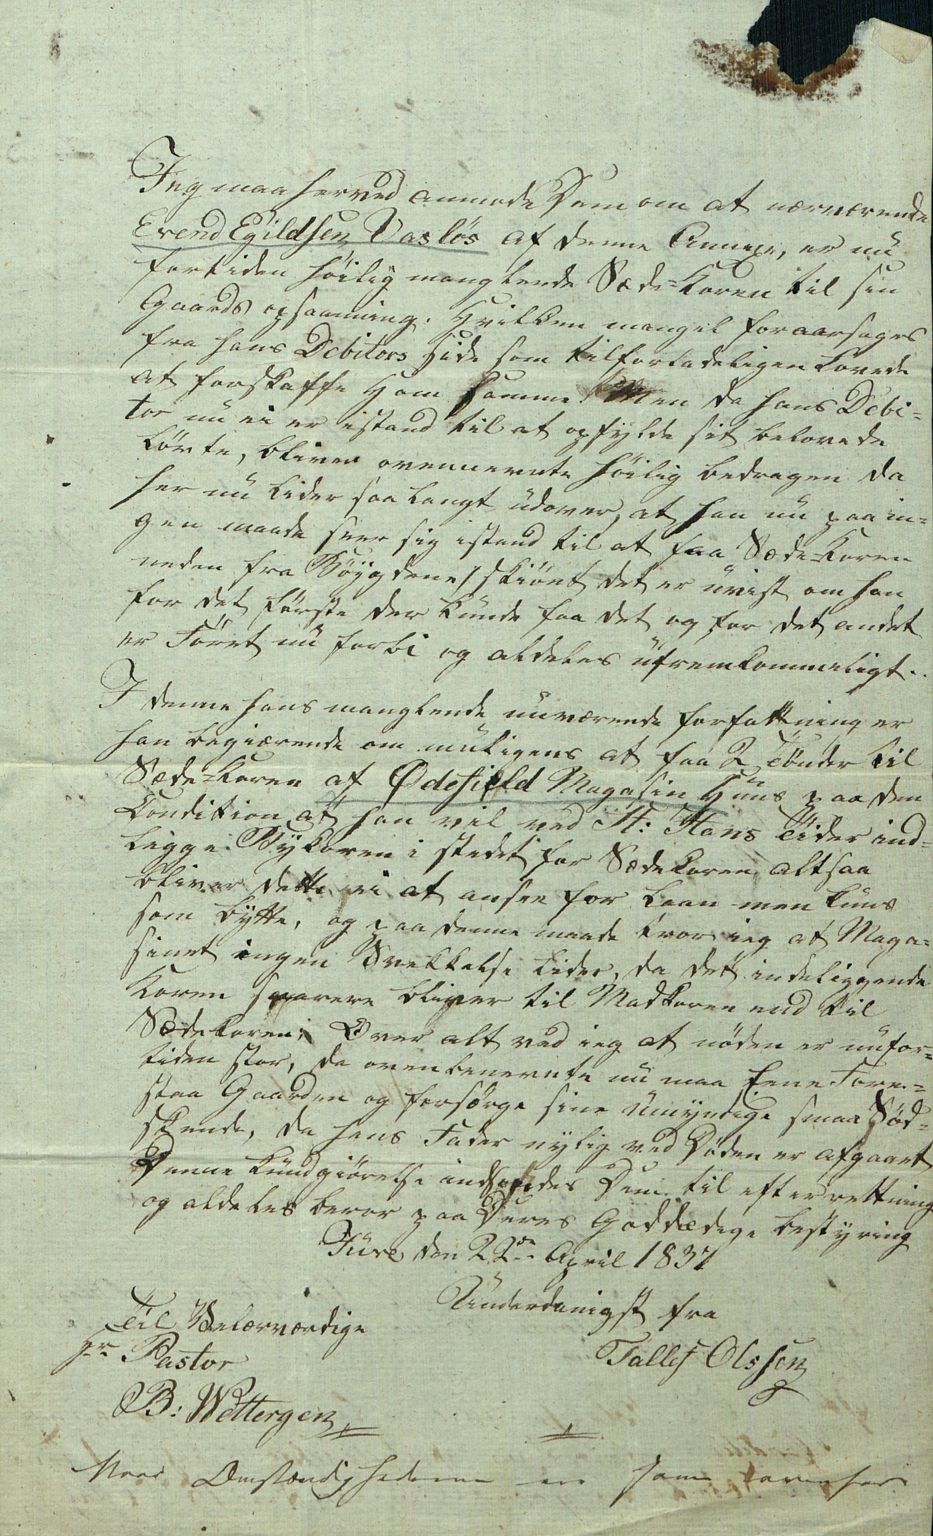 Jeg maa herved anmode Dem om at nærværende
Evend Egildsen Vasløs af denne Annex, er nu
fortiden høilig manglende Sæde=Koren til sin
Gaards opsaaning. Hvilken mangel foraarsages
fra hans Debitors side som tilforladeligen lovede
at forskaffe Ham samme. Men da hans Debi=
tor nu ei er istand til at opfylde sit belovede
Løvte, bliver ovennevnte høilig bedragen da
her nu lider saa langt udover, at han nu paa in=
gen maade seer sig istand til at faa Sæde=Koren
neden fra Bøygdene, skiønt det er uvist om han
for det første der kunde faa det og for det andet
er Føret nu forbi og aldeles ufremkommeligt.
I denne hans manglende nuværende forfattning er
han begiærende om muligens at faa 2 Tønder til
Sæde=Koren af Ødefield Magasin Huus paa den
Condition at han vil ved St: Hans Tider ind=
legge Bykoren i stedet for Sædekoren altsaa
bliver dette ei at ansee for Laan men kuns
som bytte, og paa denne maade tror ieg at Maga=
sinet ingen Svekkelse lider, da det indeliggende
Koren snarere bliver til Madkoren end til
Sædekoren. Over alt ved ieg at nøden er nu for=
tiden stor, da ovenbenevnte nu maa Ene Fore=
staa Gaarden og forsørge sine umyndige smaa Sød=
skende, da hans Fader nylig ved Døden er afgaaet
Denne kundgiørelse indsendes Dem til efterrettning
og aldeles beror paa Deres Goddædige bestyring
Ture den 22de April 1837
Underdanigst fra
Tallef Olssen
Til Velærværdige
Hr Pastor
B: Wettergen
Naar Omstændighederne ere som